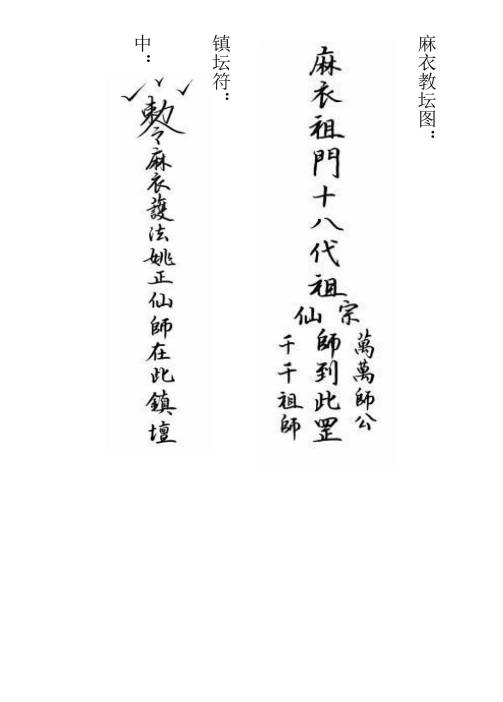 麻衣教坛图：
麻衣祖門十八代祖
宗
仙
師到此罡
萬萬師公
千千祖師
镇坛符：
中：
敕令麻衣護法姚正仙師在此鎮壇